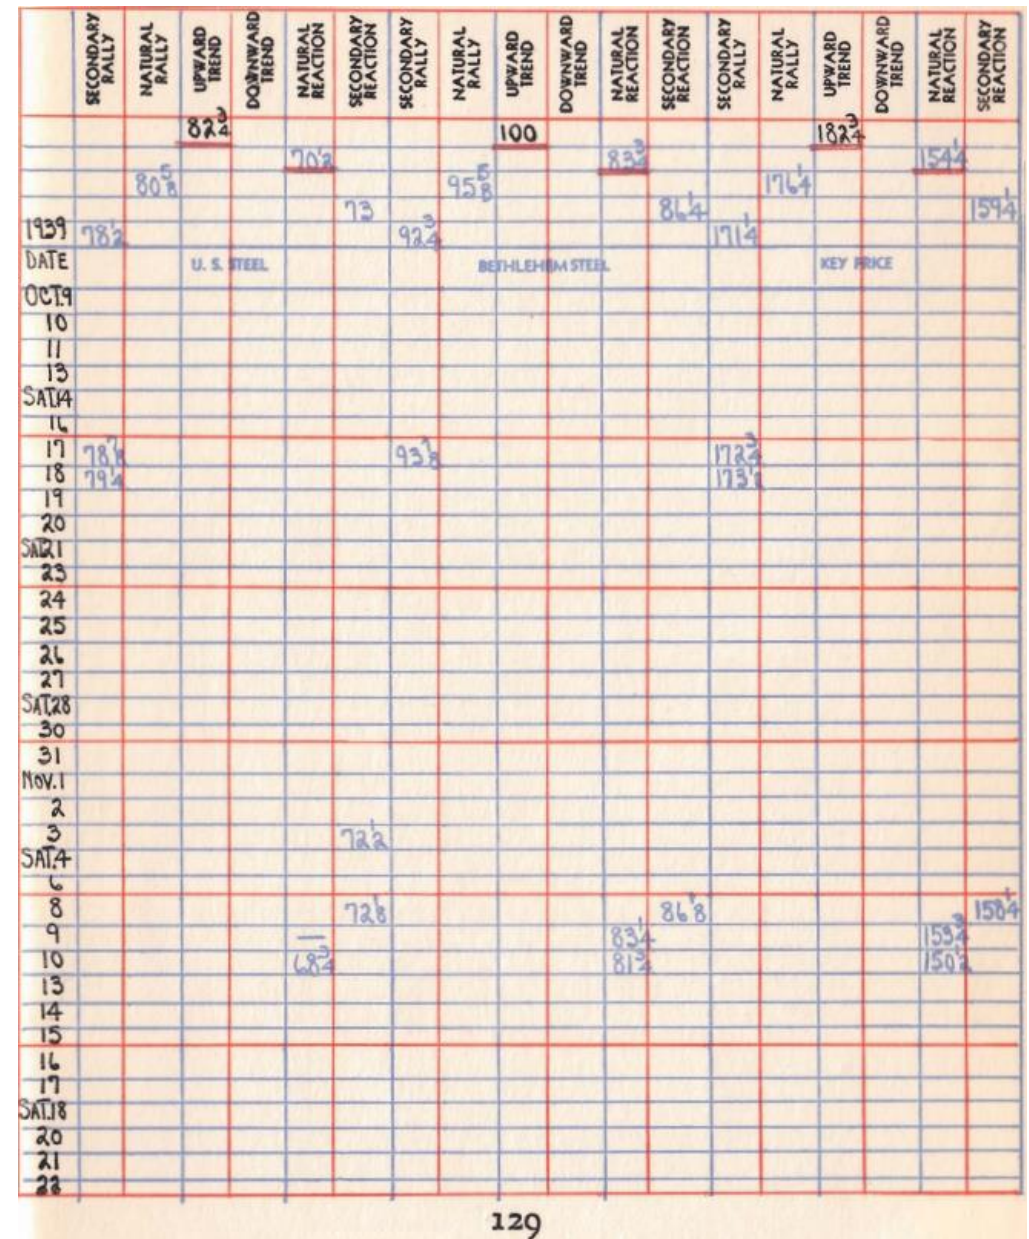 SECONDARY RALLY NATURAL RALLY UPWARD TREND DOWNWARD TREND NATURAL REACTION SECONDARY REACTION SECONDARY RALLY NATURAL RALLY UPWARD TREND DOWNWARD TREND NATURAL REACTION SECONDARY REACTION SECONDARY RALLY NATURAL RALLY UPWARD TREND DOWNWARD TREND NATURAL REACTION SECONDARY REACTION
82 3/4 100 182 3/4
70 1/2 83 3/4 154 1/4
80 5/8 95 5/8 176 1/4
73 86 1/4 159 1/4
1939 78 1/2 92 3/4 171 1/4
DATE U. S. STEEL BETHLEHEM STEEL KEY PRICE
OCT.9
10
11
13
SAT.14
16
17 78 7/8 93 7/8 172 3/4
18 79 1/4 173 1/2
19
20
SAT.21
23
24
25
26
27
SAT.28
30
31
Nov.1
2
3 72 1/2
SAT.4
6
8 72 1/8 86 1/8 158 1/4
9 — 83 1/4 153 3/4
10 68 3/4 81 3/4 150 1/2
13
14
15
16
17
SAT.18
20
21
22
129